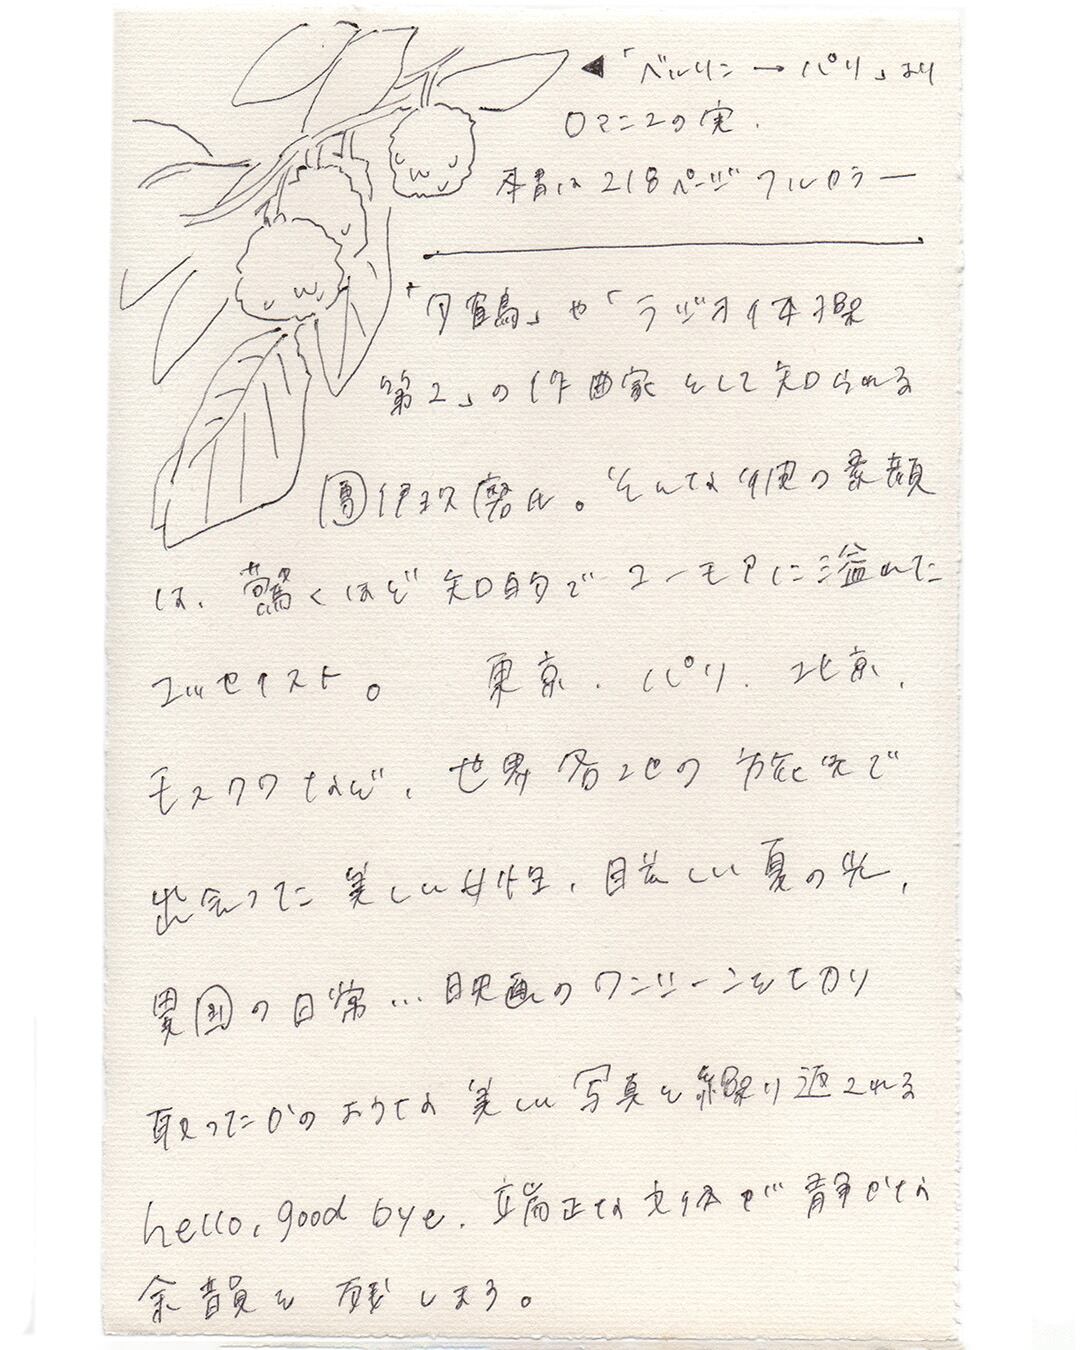 ◀「ベルリン→パリ」より
ロマニエの実.
本書は218ページフルカラー
「夕鶴」や「ラジオ体操
第2」の作曲家として知られる
團伊玖磨氏。そんな彼の素顔
は、驚くほど知的でユーモアに溢れた
エッセイスト。 東京、パリ、北京、
モスクワなど、世界各地の旅先で
出会った美しい女性、眩しい夏の光、
異国の日常…映画のワンシーンを切り
取ったかのような美しい写真と繰り返される
hello, good bye. 端正な文体が静かな
余韻を残します。